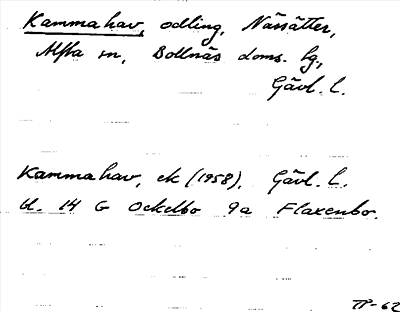 Kammahav, odling, Nässätter,
Alfta sn, Bollnäs doms. sg,
Gävl. l.
Kammahav, ek (1958). Gävl. l.
bl. 14 G Ockelbo 9a Flaxenbo.
TP-62